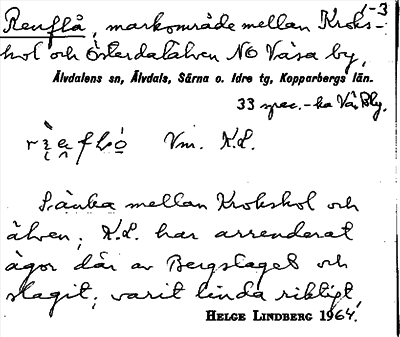 1-3
Renflå, markområde mellan Kroks-
hol och Österdalälven NO Våsa by,
Älvdalens sn, Älvdals, Särna o. Idre tg, Kopparbergs län.
33 spec.-ka
Vm. K.L.
Sänka mellan Krokshol och
älven; K.L. har arrenderat
ägor där av Bergslaget och
slagit; varit linda riktigt.
HELGE LINDBERG 1964.